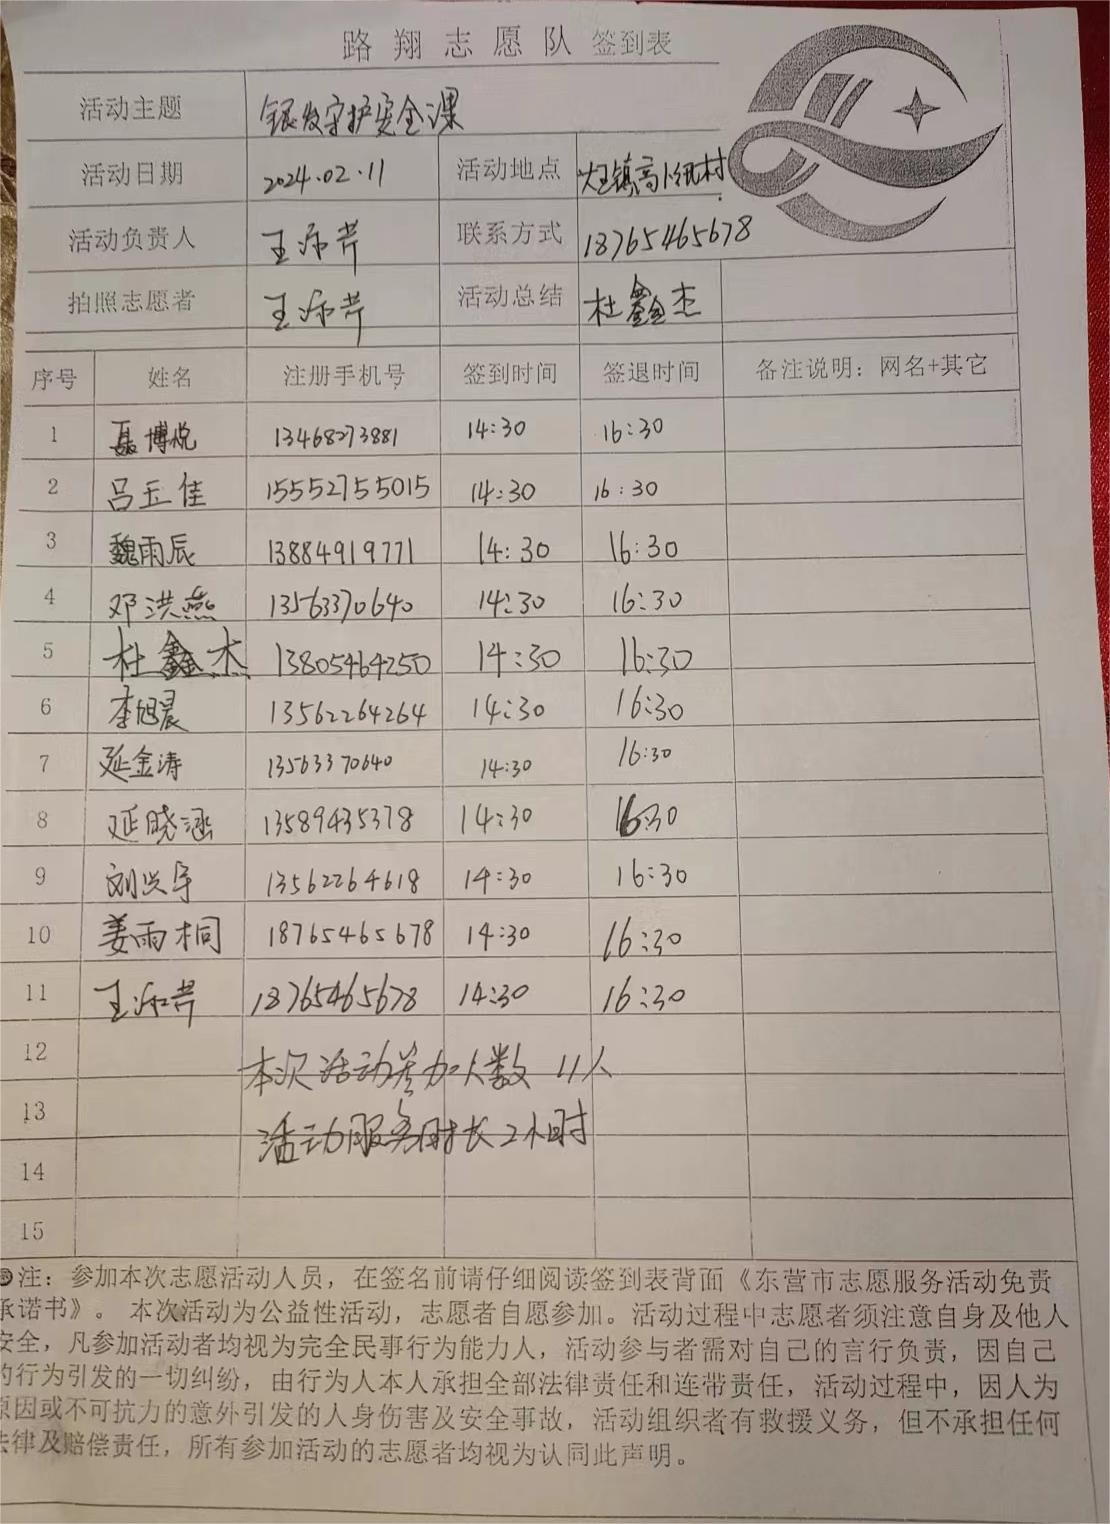 路翔志愿队 签到表
活动主题 银发守护安全课
活动日期 2024.02.11 活动地点 大王镇高村
活动负责人 王添芹 联系方式 18765465678
拍照志愿者 王添芹 活动总结 杜鑫杰
序号 姓名 注册手机号 签到时间 签退时间 备注说明：网名+其它
1 聂博悦 13468273881 14:30 16:30
2 吕玉佳 15552755015 14:30 16:30
3 魏雨辰 13884919771 14:30 16:30
4 邓洪燕 13563370640 14:30 16:30
5 杜鑫杰 13805464250 14:30 16:30
6 李旭晨 13562264264 14:30 16:30
7 延金涛 13563370640 14:30 16:30
8 延晓涵 13589435378 14:30 16:30
9 刘兴宇 13562264618 14:30 16:30
10 姜雨桐 18765465678 14:30 16:30
11 王添芹 18765465678 14:30 16:30
12 本次活动参加人数 11人
13 活动服务时长2小时
14
15
注：参加本次志愿活动人员，在签名前请仔细阅读签到表背面《东营市志愿服务活动免责
承诺书》。 本次活动为公益性活动，志愿者自愿参加。活动过程中志愿者须注意自身及他人
安全，凡参加活动者均视为完全民事行为能力人，活动参与者需对自己的言行负责，因自己
的行为引发的一切纠纷，由行为人本人承担全部法律责任和连带责任，活动过程中，因人为
原因或不可抗力的意外引发的人身伤害及安全事故，活动组织者有救援义务，但不承担任何
法律及赔偿责任，所有参加活动的志愿者均视为认同此声明。